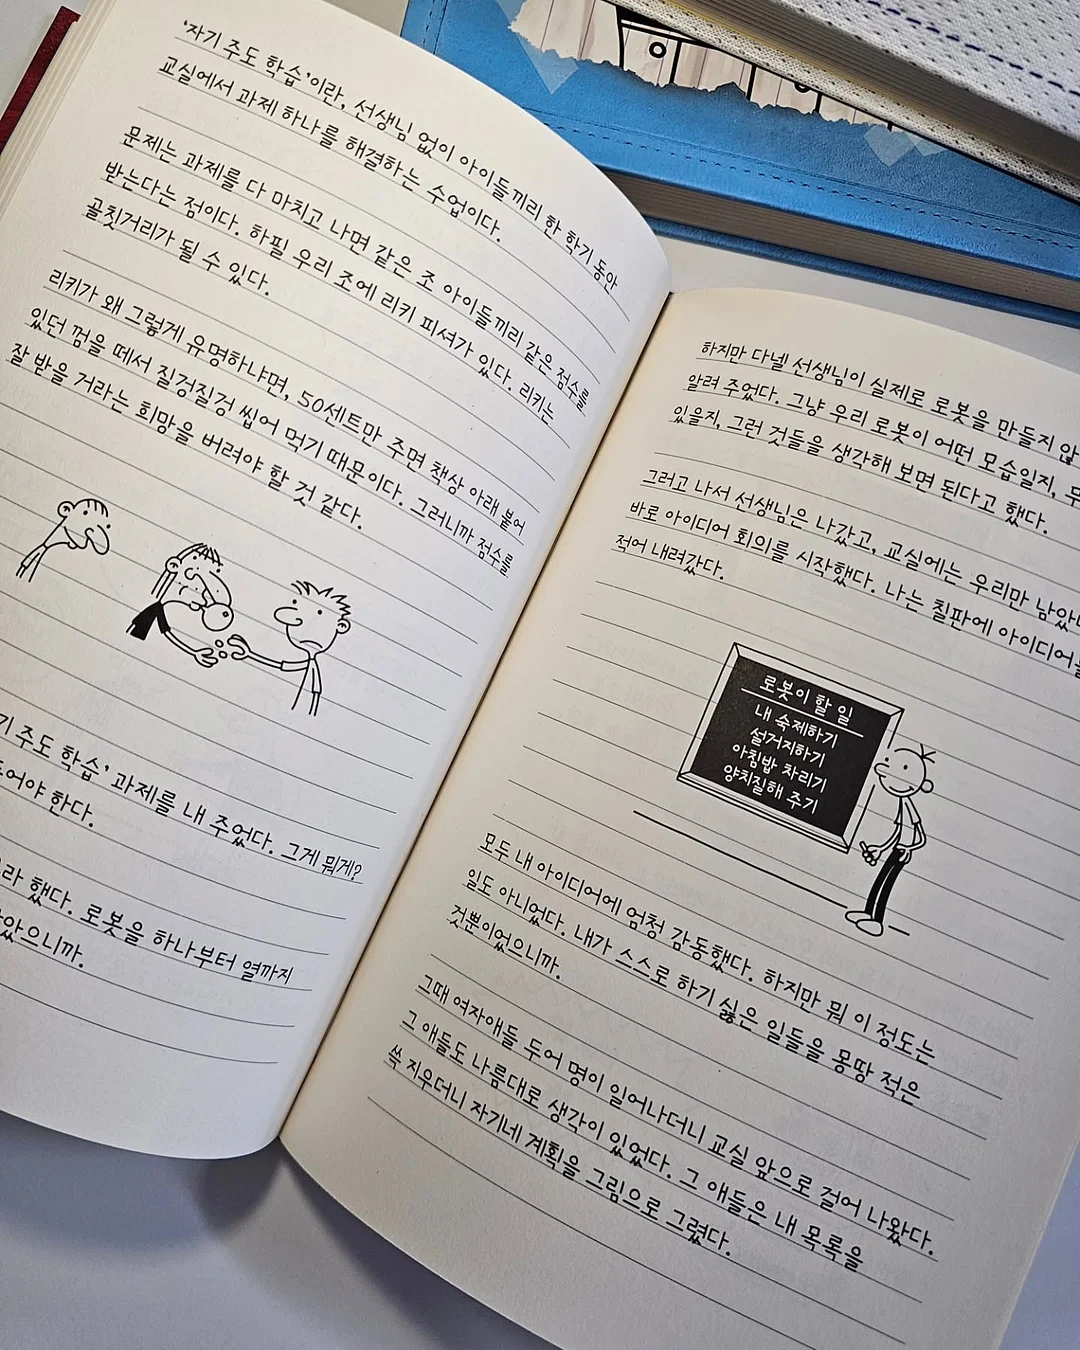 '자기 주도 학습'이란, 선생님 없이 아이들끼리 한 학기 동안
교실에서 과제 하나를 해결하는 수업이다.
문제는 과제를 다 마치고 나면 같은 조 아이들끼리 같은 점수를
받는다는 점이다. 하필 우리 조에 리키 피셔가 있다. 리키는
골칫거리가 될 수 있다.
리키가 왜 그렇게 유명하냐면, 50센트만 주면 책상 아래 붙어
있던 껌을 떼서 질겅질겅 씹어 먹기 때문이다. 그러니까 점수를
잘 받을 거라는 희망을 버려야 할 것 같다.
기 주도 학습' 과제를 내 주었다. 그게 뭐게?
어야 한다.
라 했다. 로봇을 하나부터 열까지
았으니까.
하지만 다넬 선생님이 실제로 로봇을 만들지 않
알려 주었다. 그냥 우리 로봇이 어떤 모습일지,
있을지, 그런 것들을 생각해 보면 된다고 했다.
그러고 나서 선생님은 나갔고, 교실에는 우리만 남았
바로 아이디어 회의를 시작했다. 나는 칠판에 아이디어를
적어 내려갔다.
로봇이 할 일
내 숙제하기
설거지하기
아침밥 차리기
양치질해 주기
모두 내 아이디어에 엄청 감동했다. 하지만 뭐 이 정도는
일도 아니었다. 내가 스스로 하기 싫은 일들을 몽땅 적은
것뿐이었으니까.
그때 여자애들 두어 명이 일어나더니 교실 앞으로 걸어 나왔다.
그 애들도 나름대로 생각이 있었다. 그 애들은 내 목록을
싹 지우더니 자기네 계획을 그림으로 그렸다.